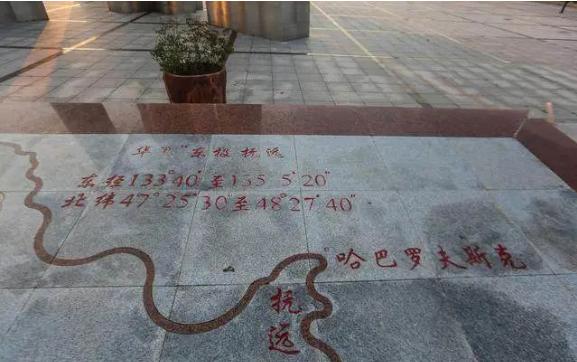 华夏"东极抚远
东经133°40′至135°5′20″
北纬47°25′30″至48°27′40″
哈巴罗夫斯克
抚远